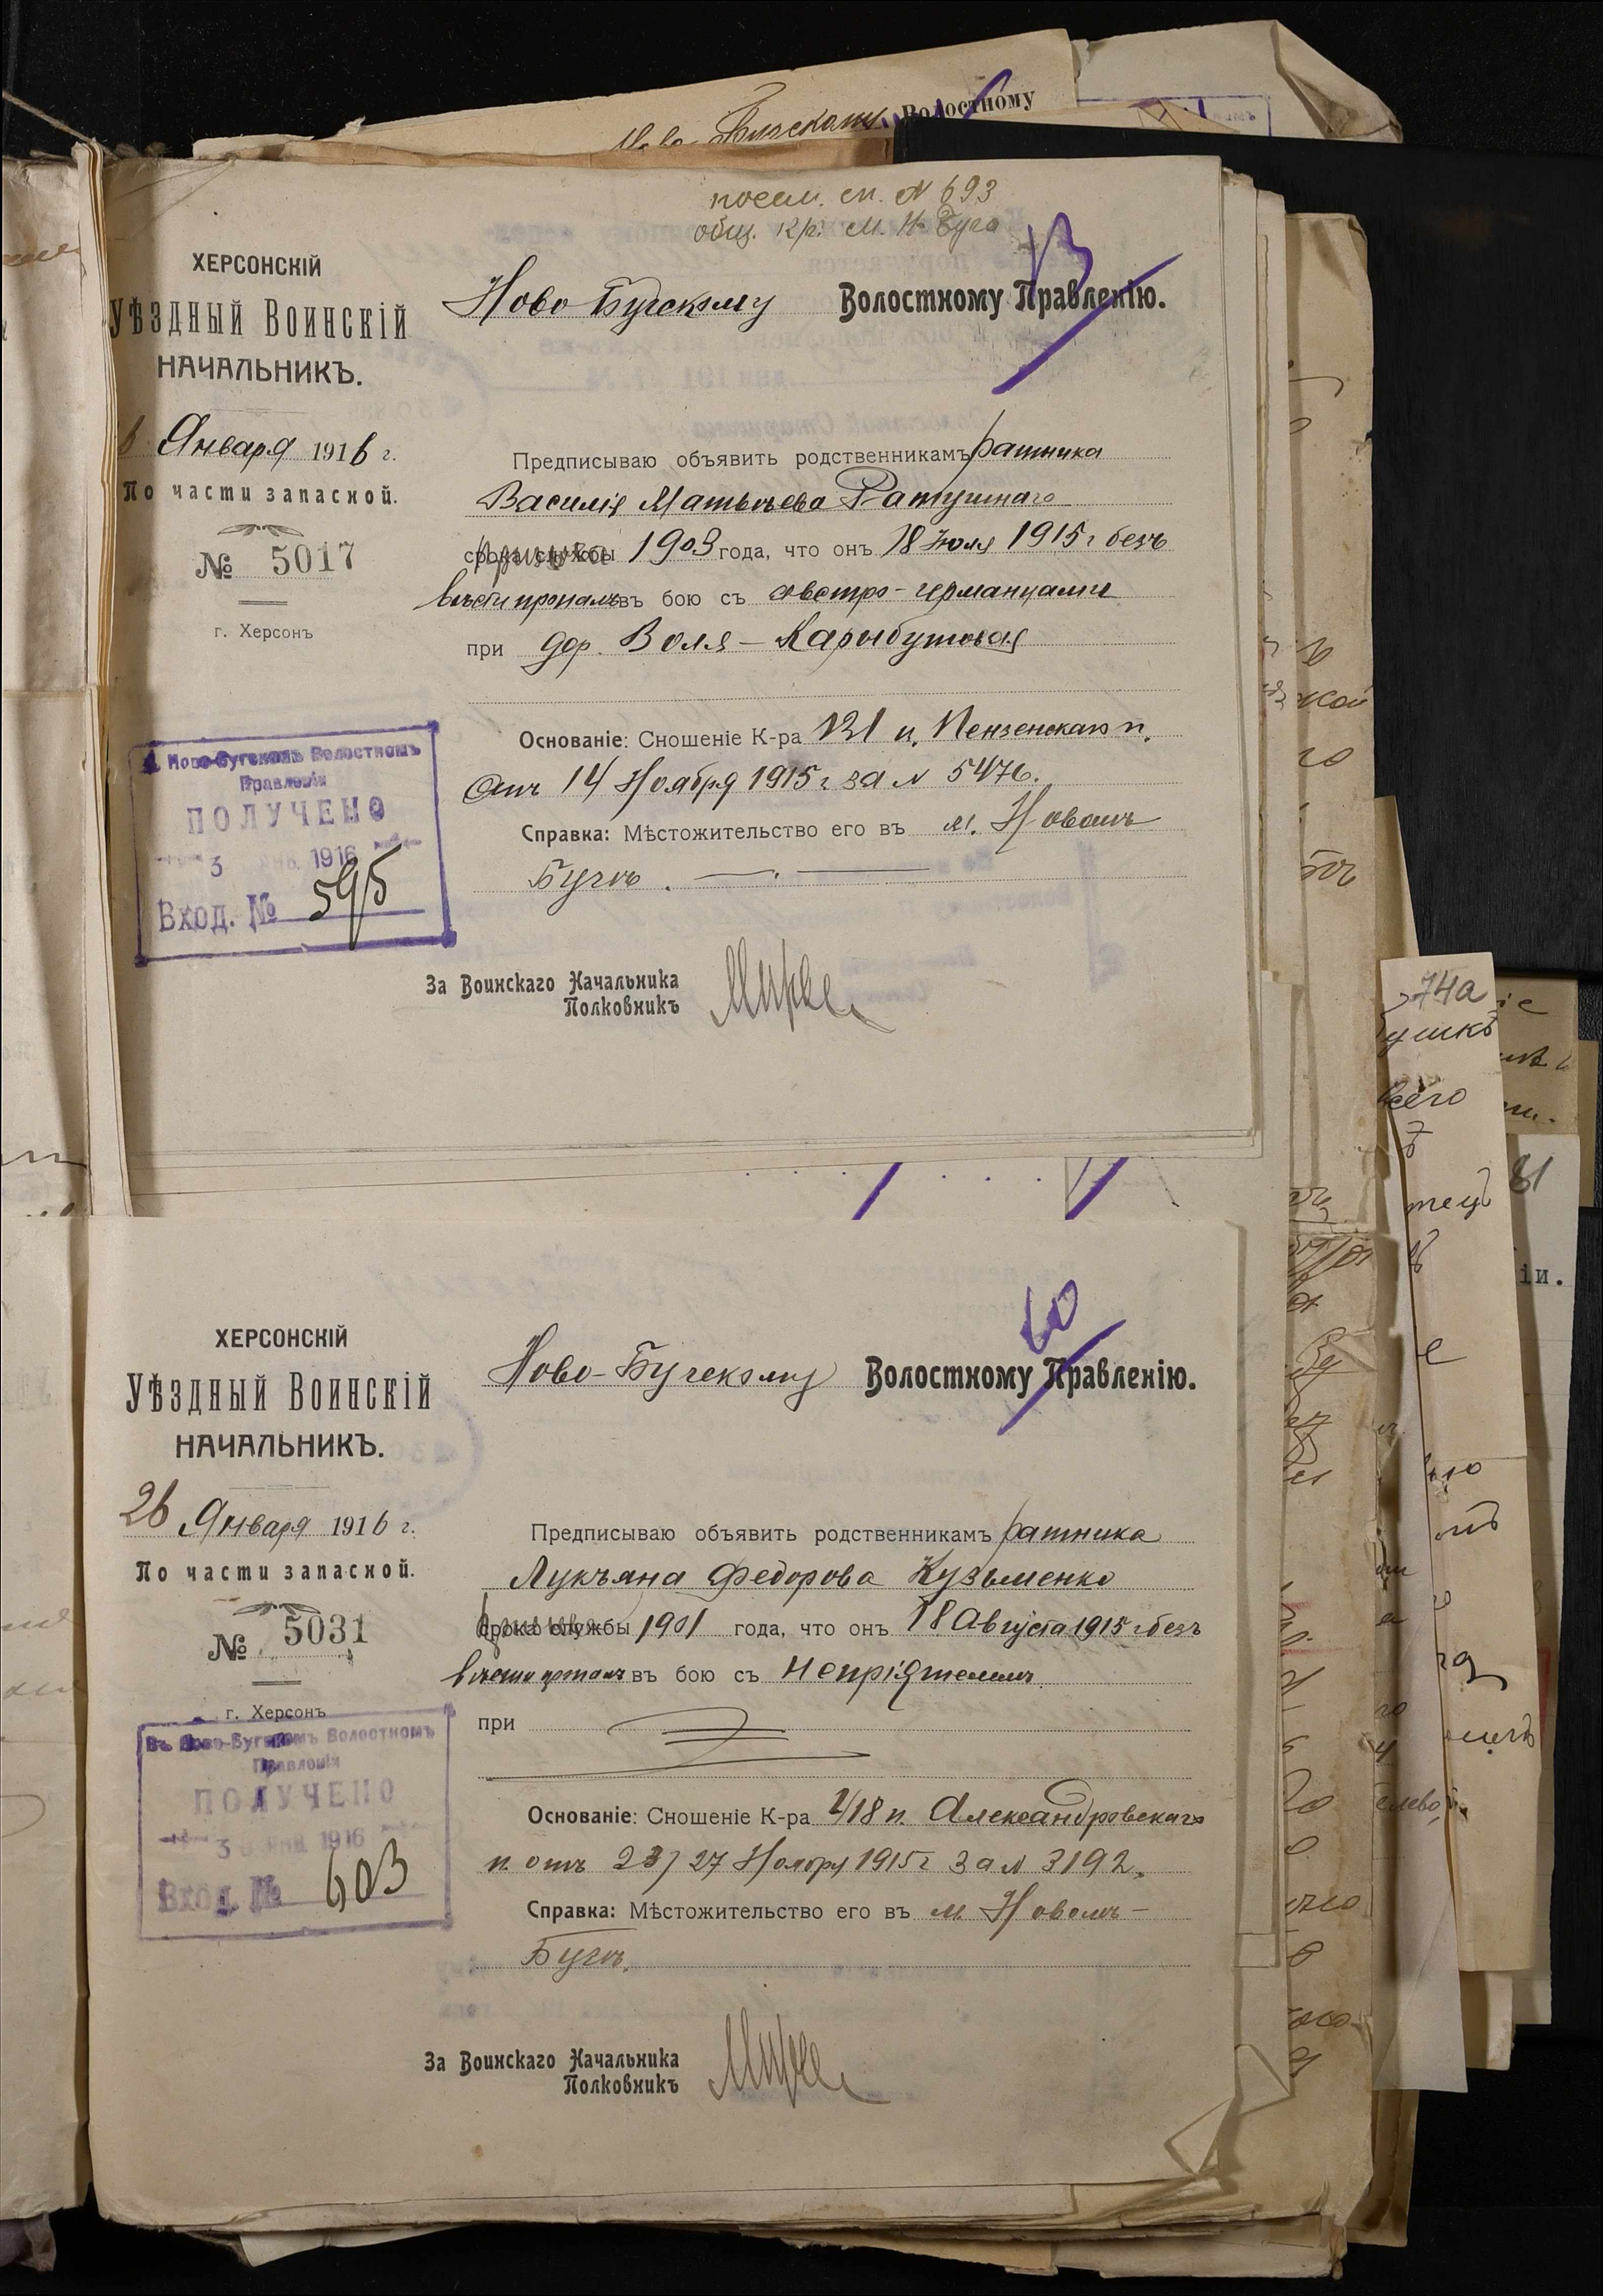 Волостному
посем. сп. № 693
общ. кр. м. Н-Буга
ХЕРСОНСКІЙ
УѢЗДНЫЙ ВОИНСКІЙ
НАЧАЛЬНИКЪ.
6 Января 1916 г.
По части запасной.
№ 5017
г. Херсонъ
Ново-Бугскому Волостному Правленію.
Предписываю объявить родственникамъ ратника
Василія Матвѣева Ратушнаго
срока службы 1903 года, что онъ 18 Іюля 1915 г безъ
вѣсти пропалъ въ бою съ австро-германцами
при дер. Воля-Карыбутовая
Основаніе: Сношеніе К-ра 121 п. Пензенскаго п.
отъ 14 Ноября 1915 г за № 5476.
Справка: Мѣстожительство его въ м. Новомъ
Бугѣ.
Ново-Бугскомъ Волостномъ
Правленіи
ПОЛУЧЕНО
3 янв. 1916
Вход. № 595
За Воинскаго Начальника
Полковникъ
ХЕРСОНСКІЙ
УѢЗДНЫЙ ВОИНСКІЙ
НАЧАЛЬНИКЪ.
26 Января 1916 г.
По части запасной.
№ 5031
г. Херсонъ
60
Ново-Бугскому Волостному Правленію.
Предписываю объявить родственникамъ ратника
Лукъяна Федорова Кузьменко
срока службы 1901 года, что онъ 18 Августа 1915 г безъ
вѣсти пропалъ въ бою съ непріятелемъ
при
Основаніе: Сношеніе К-ра п. Александровскаго
п. отъ 23/27 Ноября 1915 г за № 3192.
Справка: Мѣстожительство его въ м. Новомъ-
Бугѣ.
Въ Ново-Бугскомъ Волостномъ
Правленіи
ПОЛУЧЕНО
3 янв. 1916
Вход. № 603
За Воинскаго Начальника
Полковникъ
74а
всего
81